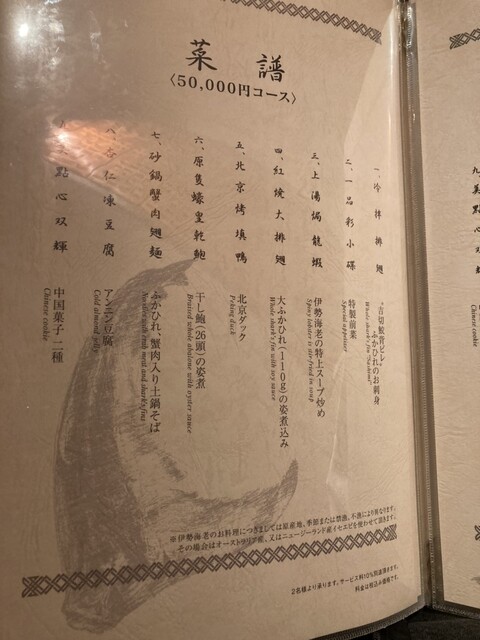 菜譜
〈50,000円コース〉
一、冷拌排翅
"吉切鮫背ビレ"
ふかひれのお刺身
Whole shark's fin "Sashimi"
二、一品彩小碟
特製前菜
Special appetizer
三、上湯焗龍蝦
伊勢海老の特上スープ炒め
Spiny lobster is stir-fried in soup
四、紅焼大排翅
大ふかひれ(110g)の姿煮込み
Whole shark's fin with soy sauce
五、北京烤填鴨
北京ダック
Peking duck
六、原隻蠔皇乾鮑
干し鮑(26頭)の姿煮
Braised whole abalone with oyster sauce
七、砂鍋蟹肉翅麺
ふかひれ、蟹肉入り土鍋そば
Noodles with crab meat and shark's fins
八、杏仁凍豆腐
アンニン豆腐
Cold almond jelly
點心双輝
中国菓子二種
Chinese cookie
※伊勢海老のお料理につきましては原産地、季節または禁漁、不漁により異なります。
その場合はオーストラリア産、又はニュージーランド産イセエビを使わせて頂きます。
2名様より承ります。サービス料10%別途頂きます。
料金は税込み価格です。
九、美點
Chinese cookie